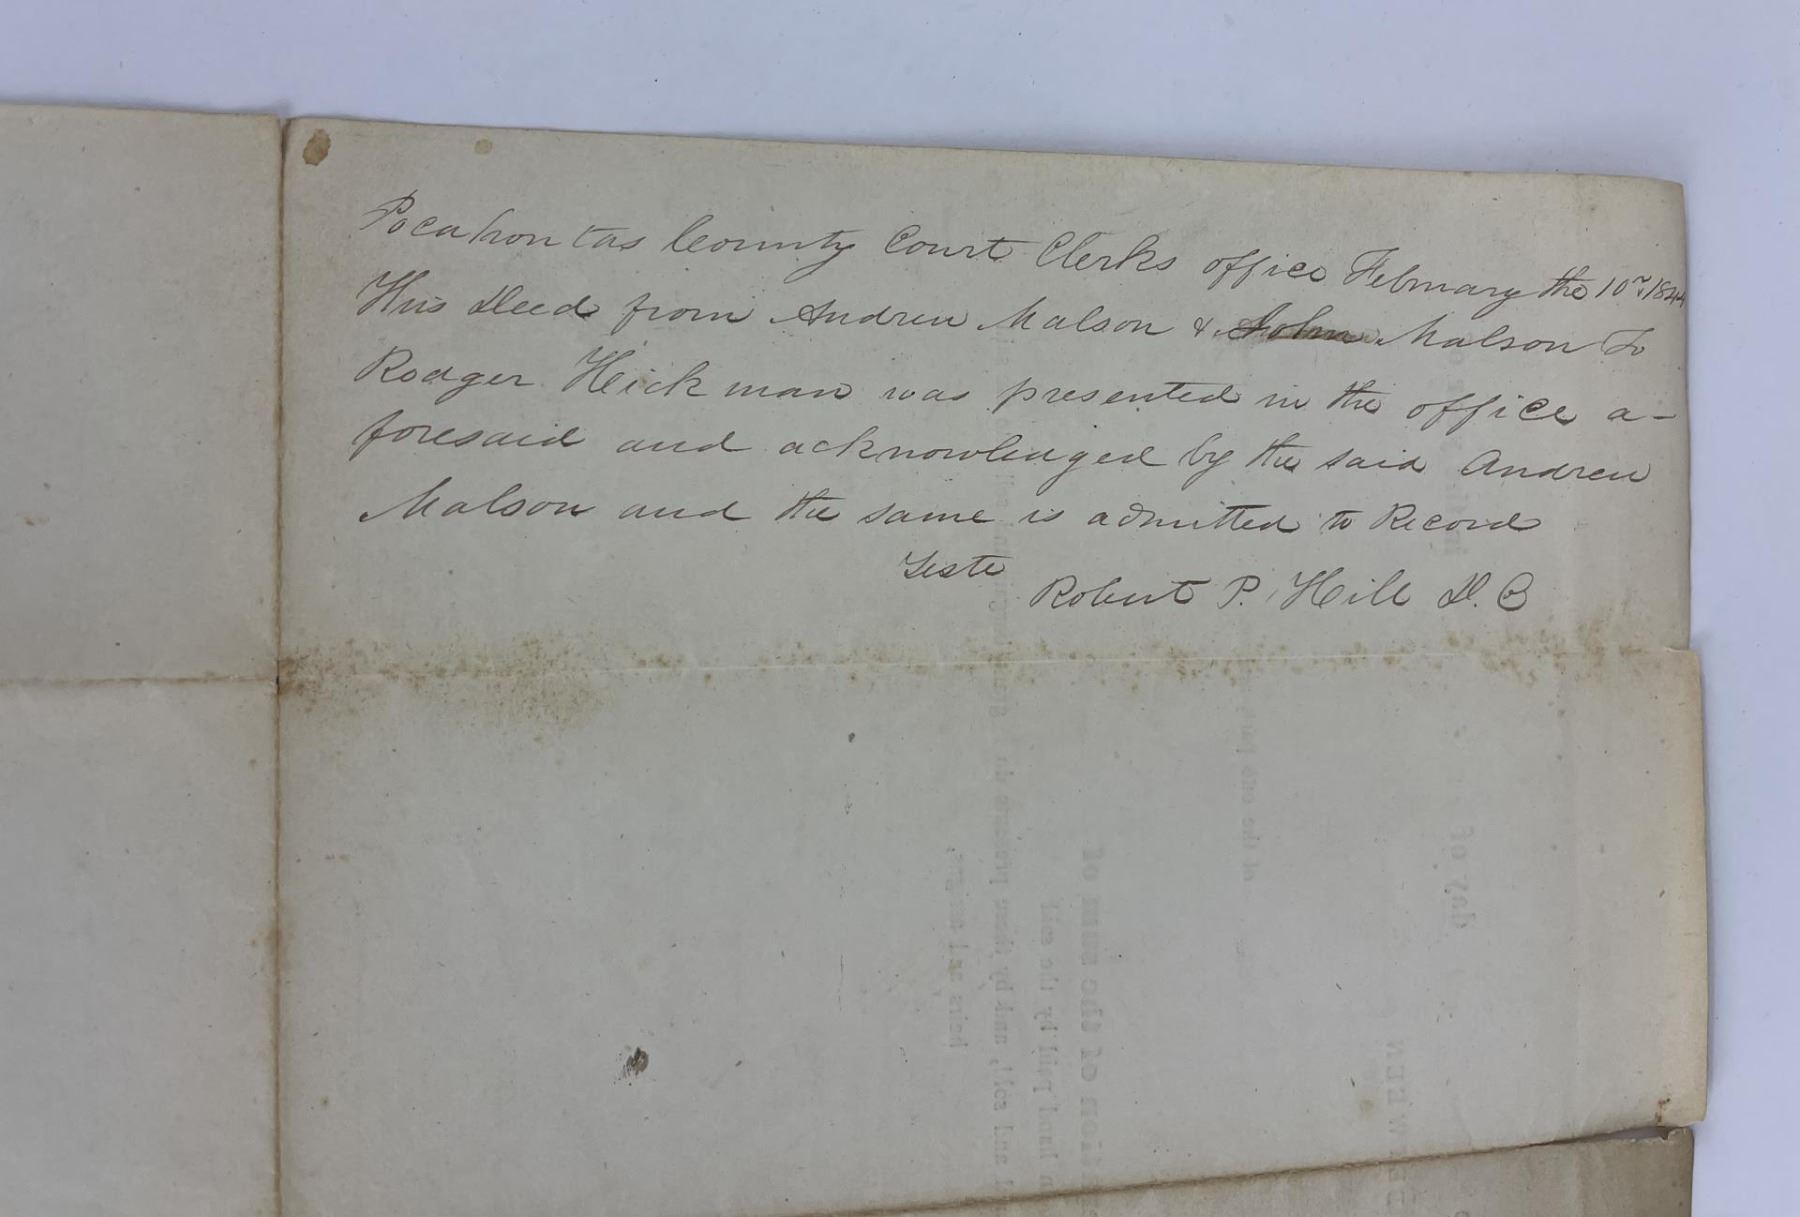 Pocahontas County Court Clerks office February the 10th 1844
This Deed from Andrew Matson & John Matson To
Rodger Hickman was presented in the office a-
foresaid and acknowledged by the said Andrew
Matson and the same is admitted to Record
Teste
Robert P. Hill D. C